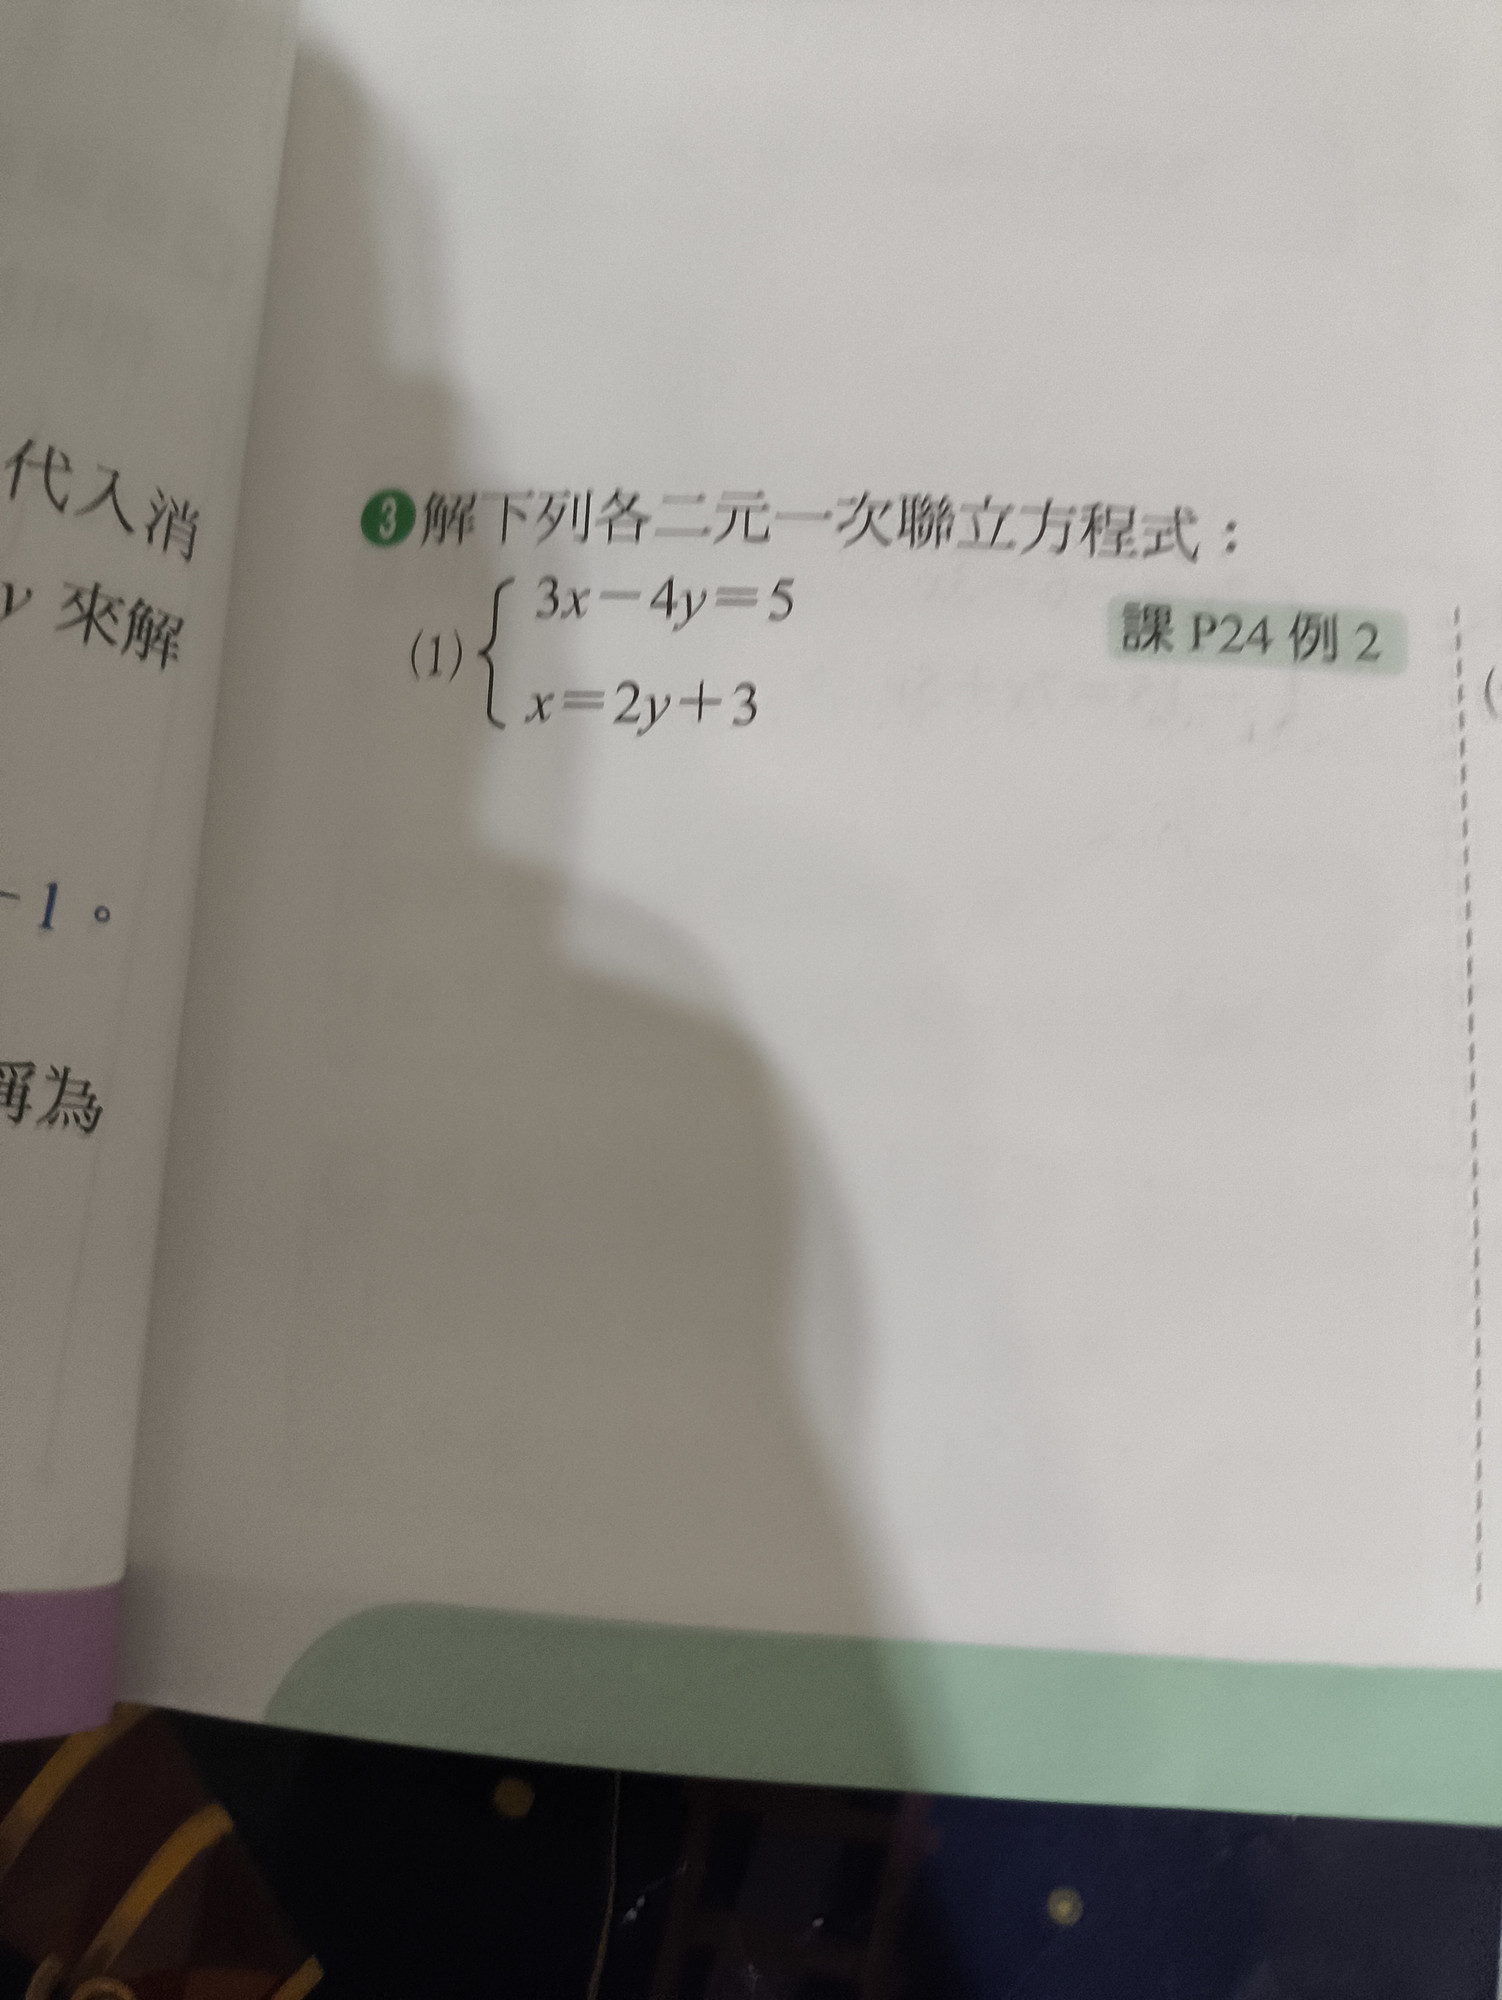 代入消
y 來解
-1。
為
3 解下列各二元一次聯立方程式：
課 P24 例 2
(1) { 3x－4y＝5
x＝2y＋3
(